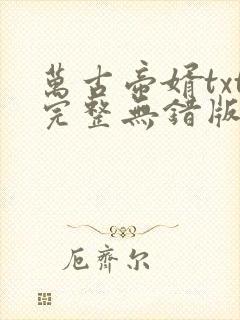 萬古帝婿txt
完整無錯版
厄齊尔